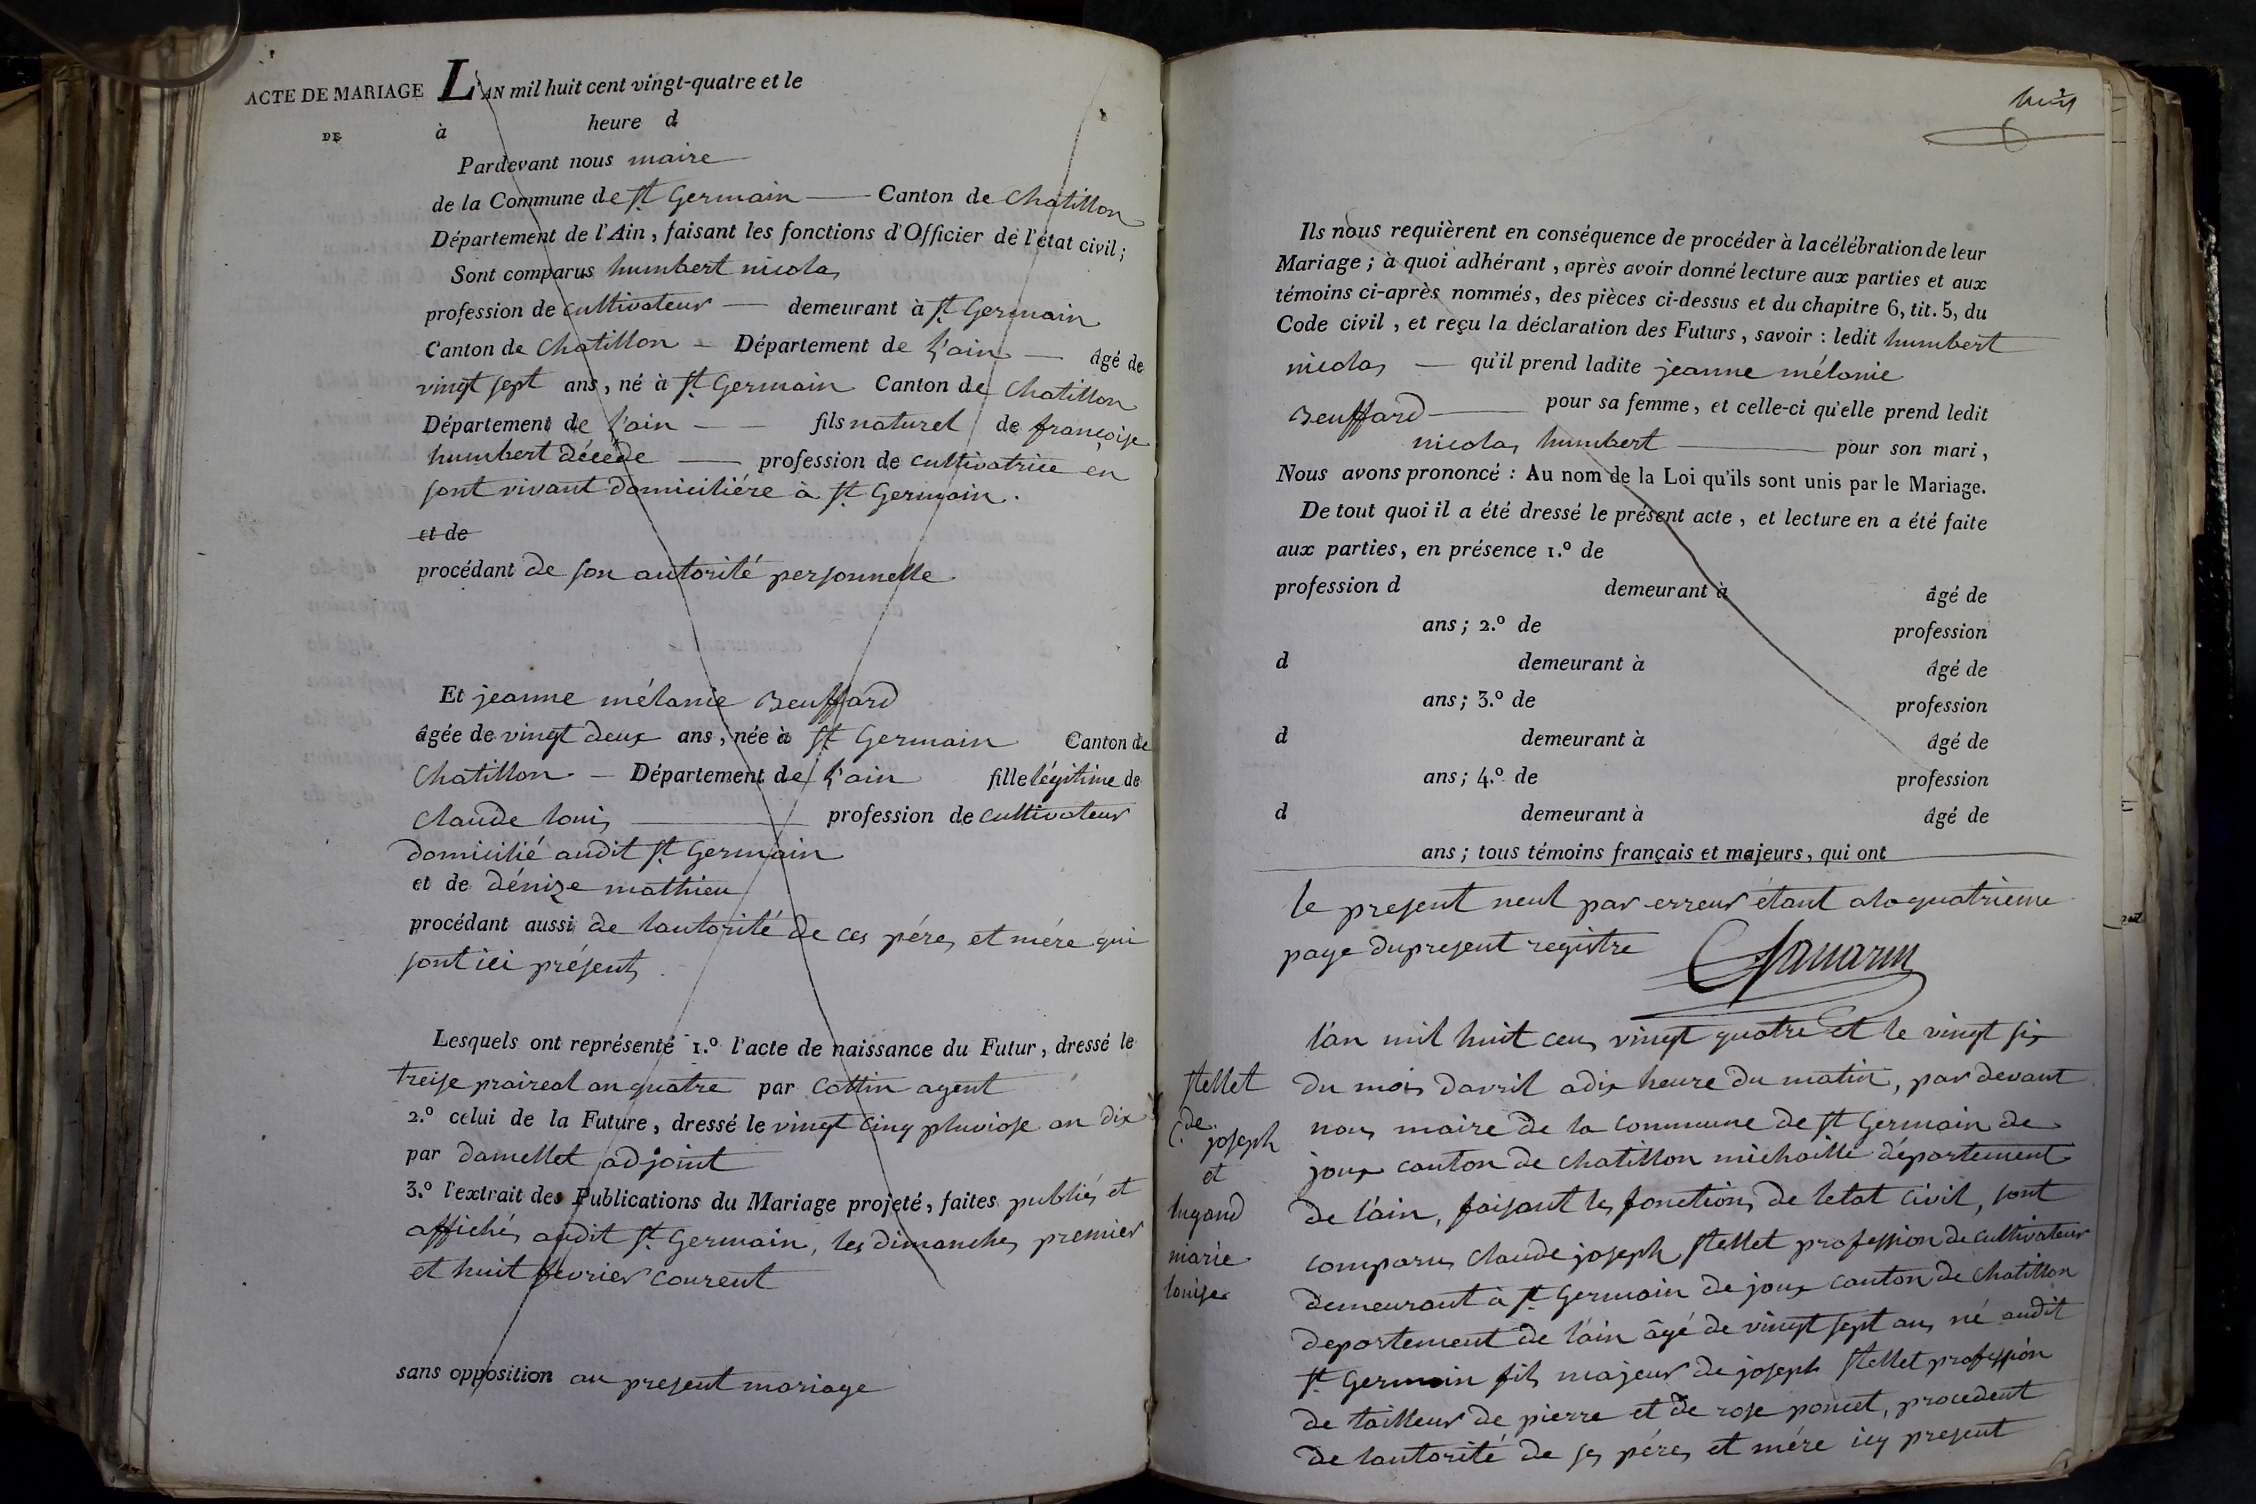 ACTE DE MARIAGE
DE
L'AN mil huit cent vingt-quatre et le
à heure d
Pardevant nous maire
de la Commune de St Germain Canton de Chatillon
Département de l'Ain, faisant les fonctions d'Officier de l'état civil;
Sont comparus humbert nicolas
profession de cultivateur demeurant à St Germain
Canton de Chatillon Département de l'ain âgé de
vingt sept ans, né à St Germain Canton de Chatillon
Département de l'ain fils naturel de françoise
humbert décédé profession de cultivatrice en
sont vivant domiciliére à St Germain.
et de
procédant de son autorité personnelle
Et jeanne mélanie Beuffard
âgée de vingt deux ans, née à St Germain Canton de
Chatillon Département de l'ain fille légitime de
Claude louis profession de cultivateur
domicilié audit St Germain
et de dénize mathieu
procédant aussi de lautorité de ces pére, et mére qui
sont ici présents
Lesquels ont représenté 1.º l'acte de naissance du Futur, dressé le
treise praireal an quatre par Cottin agent
2.º celui de la Future, dressé le vingt cinq pluviose an dix
par damellet adjoint
3.º l'extrait des Publications du Mariage projeté, faites publiés et
affichés audit St Germain, les dimanches premier
et huit fevrier courent
sans opposition au present mariage
huit
Ils nous requièrent en conséquence de procéder à la célébration de leur
Mariage; à quoi adhérant, après avoir donné lecture aux parties et aux
témoins ci-après nommés, des pièces ci-dessus et du chapitre 6, tit. 5, du
Code civil, et reçu la déclaration des Futurs, savoir : ledit humbert
nicolas qu'il prend ladite jeanne mélanie
Beuffard pour sa femme, et celle-ci qu'elle prend ledit
nicolas humbert pour son mari,
Nous avons prononcé : Au nom de la Loi qu'ils sont unis par le Mariage.
De tout quoi il a été dressé le présent acte, et lecture en a été faite
aux parties, en présence 1.º de
profession d demeurant à âgé de
ans; 2.º de profession
d demeurant à âgé de
ans; 3.º de profession
d demeurant à âgé de
ans; 4.º de profession
d demeurant à âgé de
ans; tous témoins français et majeurs, qui ont
le present neul par erreur étant ala quatrieme
page dupresent registre
stellet
C.de joseph
et
lugand
marie
louise
l'an mil huit cens vingt quatre et le vingt six
du mois davril adix heure du matin, par devant
nous maire de la commune de St Germain de
joux canton de chatillon michaille département
de l'ain, faisant les fonctions de letat civil, sont
comparus Claude joseph stellet profession de cultivateur
demeurant à St Germain de joux canton de Chatillon
departement de l'ain âgé de vingt sept ans né audit
St Germain fils majeur de joseph stellet profession
de tailleur de pierre et de rose poncet, procedent
de lautorité de ses péres et mére icy present